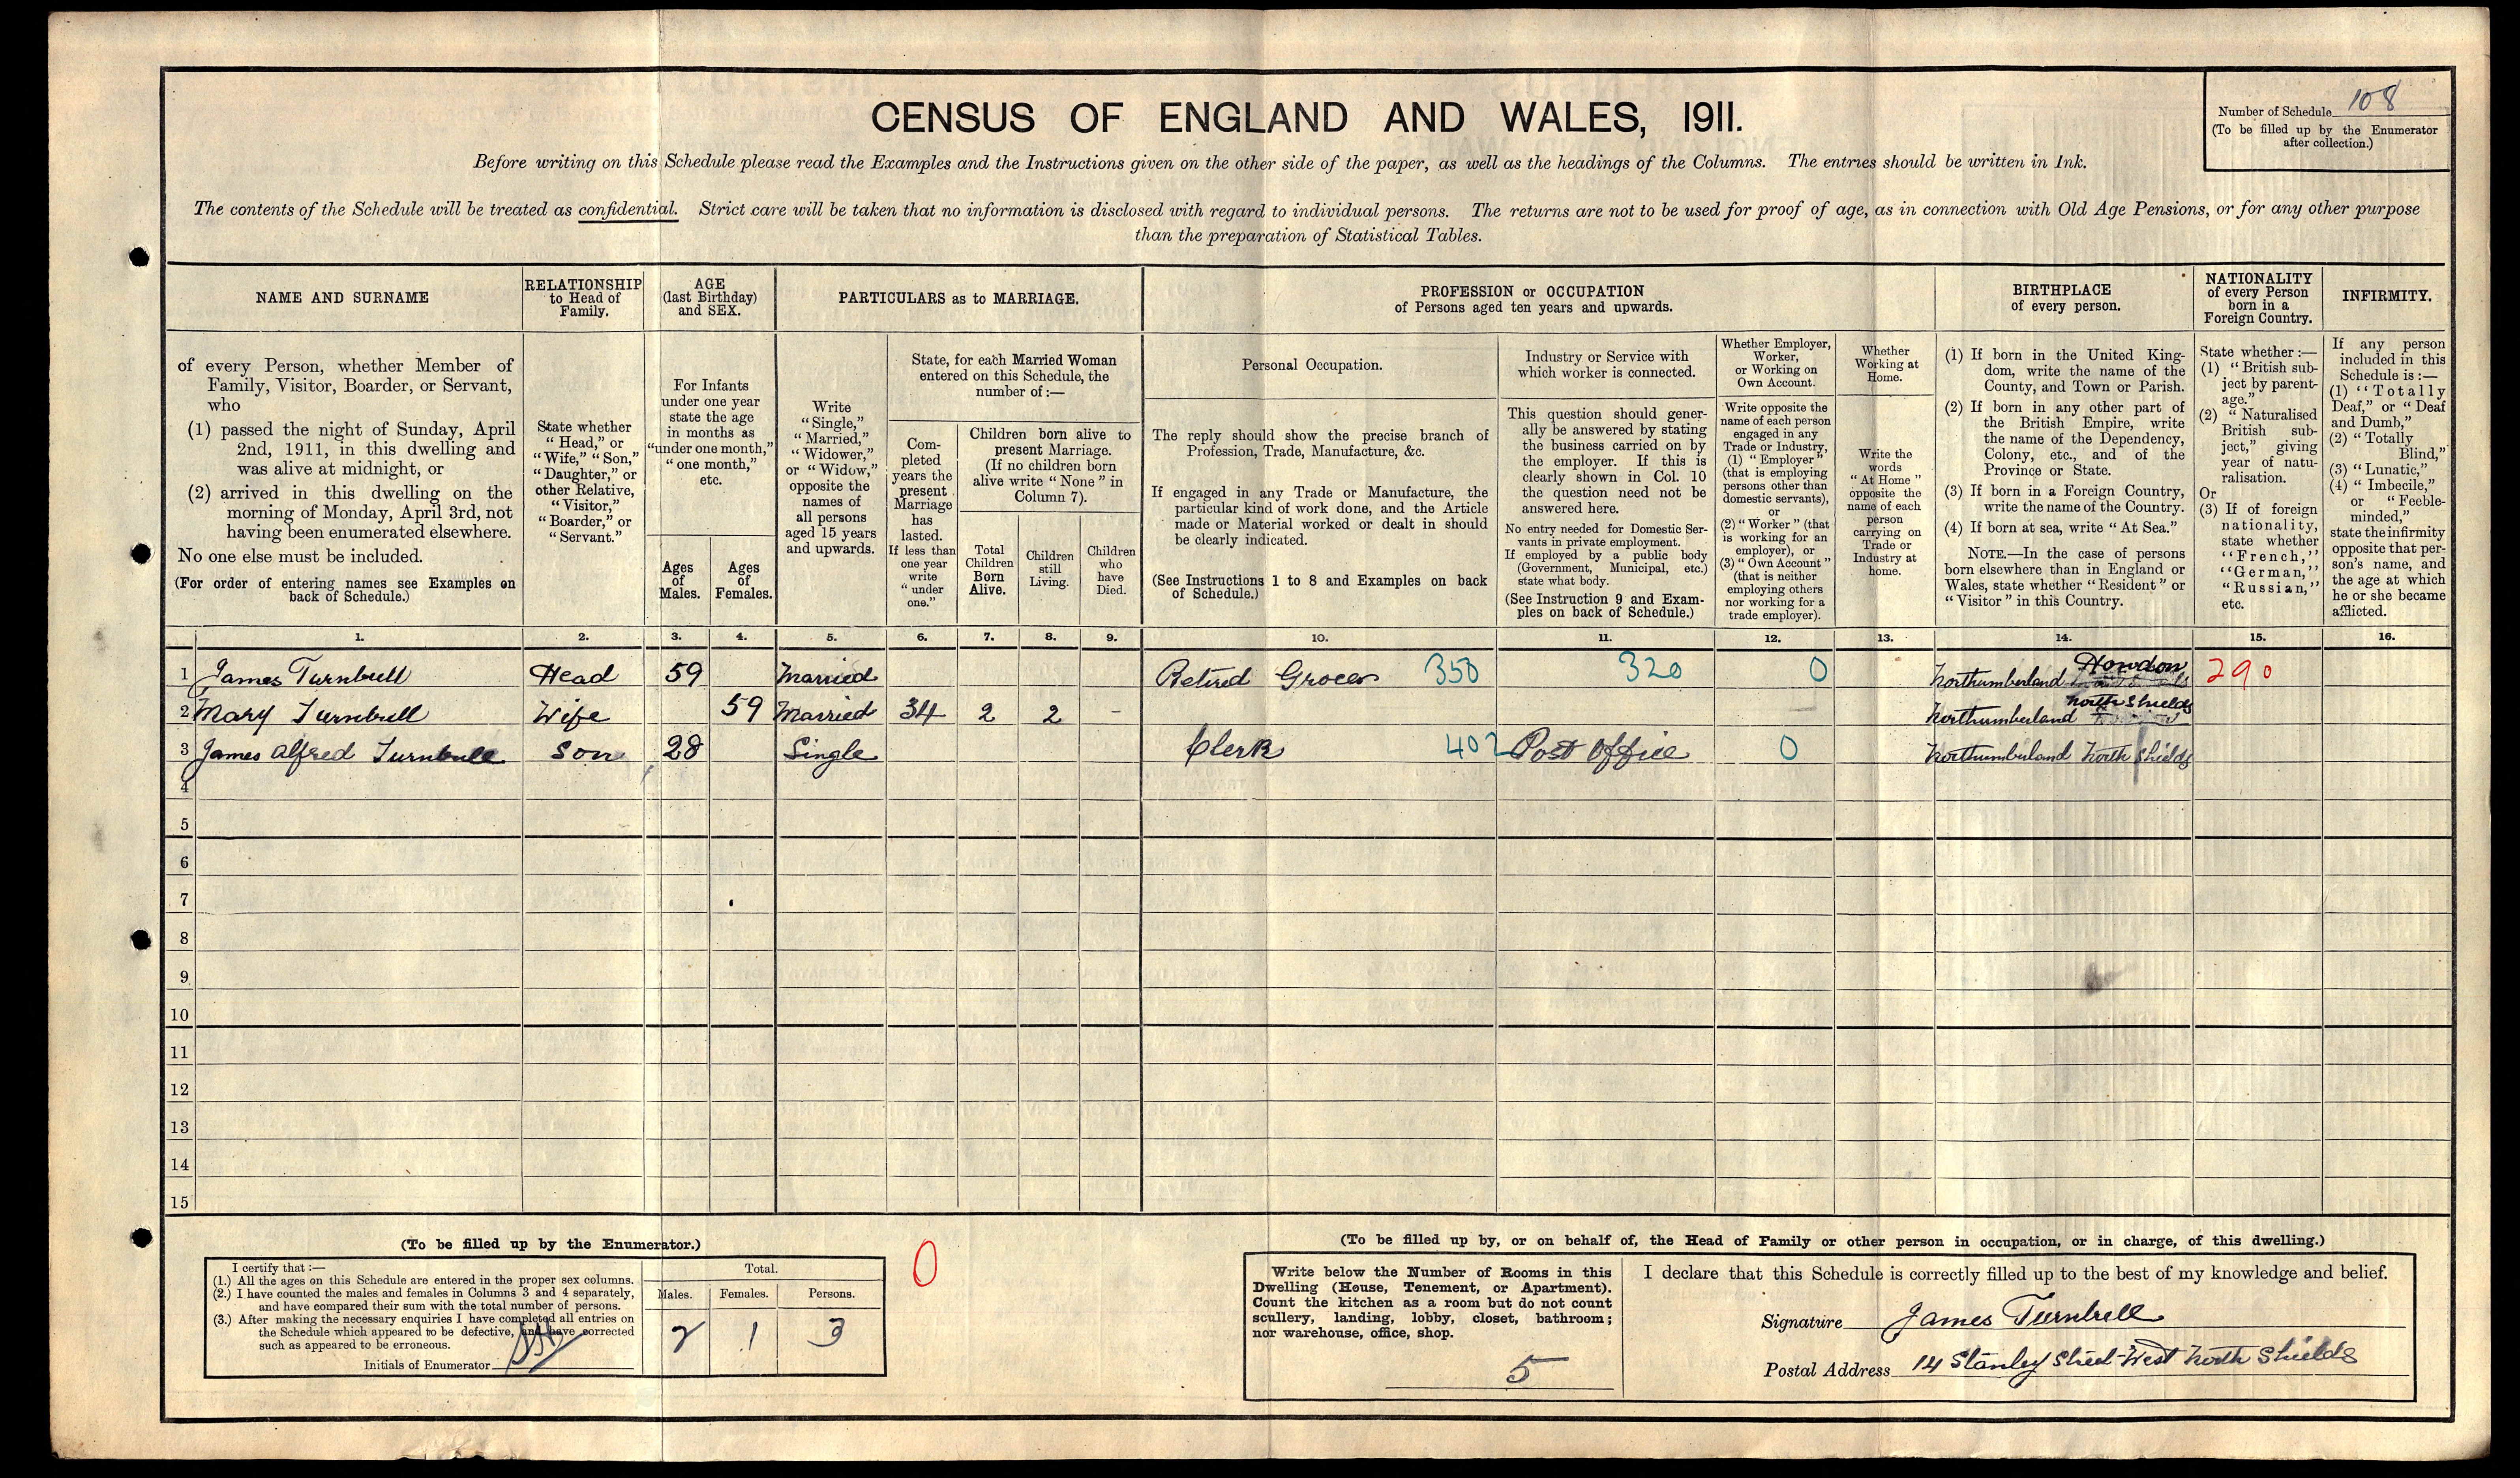 CENSUS OF ENGLAND AND WALES, 1911.
Number of Schedule 108
(To be filled up by the Enumerator
after collection.)
Before writing on this Schedule please read the Examples and the Instructions given on the other side of the paper, as well as the headings of the Columns. The entries should be written in Ink.
The contents of the Schedule will be treated as confidential. Strict care will be taken that no information is disclosed with regard to individual persons. The returns are not to be used for proof of age, as in connection with Old Age Pensions, or for any other purpose
than the preparation of Statistical Tables.
NAME AND SURNAME
of every Person, whether Member of
Family, Visitor, Boarder, or Servant,
who
(1) passed the night of Sunday, April
2nd, 1911, in this dwelling and
was alive at midnight, or
(2) arrived in this dwelling on the
morning of Monday, April 3rd, not
having been enumerated elsewhere.
No one else must be included.
(For order of entering names see Examples on
back of Schedule.)
RELATIONSHIP
to Head of
Family.
State whether
"Head," or
"Wife," "Son,"
"Daughter," or
other Relative,
"Visitor,"
"Boarder," or
"Servant."
AGE
(last Birthday)
and SEX.
For Infants
under one year
state the age
in months as
"under one month,"
"one month,"
etc.
Ages
of
Males.
Ages
of
Females.
PARTICULARS as to MARRIAGE.
Write
"Single,"
"Married,"
"Widower,"
or "Widow,"
opposite the
names of
all persons
aged 15 years
and upwards.
State, for each Married Woman
entered on this Schedule, the
number of:—
Com-
pleted
years the
present
Marriage
has
lasted.
If less than
one year
write
"under
one."
Children born alive to
present Marriage.
(If no children born
alive write "None" in
Column 7).
Total
Children
Born
Alive.
Children
still
Living.
Children
who
have
Died.
PROFESSION or OCCUPATION
of Persons aged ten years and upwards.
Personal Occupation.
The reply should show the precise branch of
Profession, Trade, Manufacture, &c.
If engaged in any Trade or Manufacture, the
particular kind of work done, and the Article
made or Material worked or dealt in should
be clearly indicated.
(See Instructions 1 to 8 and Examples on back
of Schedule.)
Industry or Service with
which worker is connected.
This question should gener-
ally be answered by stating
the business carried on by
the employer. If this is
clearly shown in Col. 10
the question need not be
answered here.
No entry needed for Domestic Ser-
vants in private employment.
If employed by a public body
(Government, Municipal, etc.)
state what body.
(See Instruction 9 and Exam-
ples on back of Schedule.)
Whether Employer,
Worker,
or Working on
Own Account.
Write opposite the
name of each person
engaged in any
Trade or Industry,
(1) "Employer"
(that is employing
persons other than
domestic servants),
or
(2) "Worker" (that
is working for an
employer), or
(3) "Own Account"
(that is neither
employing others
nor working for a
trade employer).
Whether
Working at
Home.
Write the
words
"At Home"
opposite the
name of each
person
carrying on
Trade or
Industry at
home.
BIRTHPLACE
of every person.
(1) If born in the United King-
dom, write the name of the
County, and Town or Parish.
(2) If born in any other part of
the British Empire, write
the name of the Dependency,
Colony, etc., and of the
Province or State.
(3) If born in a Foreign Country,
write the name of the Country.
(4) If born at sea, write "At Sea."
NOTE.—In the case of persons
born elsewhere than in England or
Wales, state whether "Resident" or
"Visitor" in this Country.
NATIONALITY
of every Person
born in a
Foreign Country.
State whether:—
(1) "British sub-
ject by parent-
age."
(2) "Naturalised
British sub-
ject," giving
year of natu-
ralisation.
Or
(3) If of foreign
nationality,
state whether
"French,"
"German,"
"Russian,"
etc.
INFIRMITY.
If any person
included in this
Schedule is:—
(1) "Totally
Deaf," or "Deaf
and Dumb,"
(2) "Totally
Blind,"
(3) "Lunatic,"
(4) "Imbecile,"
or "Feeble-
minded,"
state the infirmity
opposite that per-
son's name, and
the age at which
he or she became
afflicted.
1. 2. 3. 4. 5. 6. 7. 8. 9. 10. 11. 12. 13. 14. 15. 16.
1 James Turnbull Head 59 Married Retired Grocer 350 320 0 Northumberland Howdon 290
2 Mary Turnbull Wife 59 Married 34 2 2 - Northumberland North Shields
3 James Alfred Turnbull Son 28 Single Clerk 402 Post Office 0 Northumberland North Shields
4
5
6
7
8
9
10
11
12
13
14
15
(To be filled up by the Enumerator.)
I certify that:—
(1.) All the ages on this Schedule are entered in the proper sex columns.
(2.) I have counted the males and females in Columns 3 and 4 separately,
and have compared their sum with the total number of persons.
(3.) After making the necessary enquiries I have completed all entries on
the Schedule which appeared to be defective, and have corrected
such as appeared to be erroneous.
Initials of Enumerator
Total.
Males. Females. Persons.
2 1 3
0
(To be filled up by, or on behalf of, the Head of Family or other person in occupation, or in charge, of this dwelling.)
Write below the Number of Rooms in this
Dwelling (House, Tenement, or Apartment).
Count the kitchen as a room but do not count
scullery, landing, lobby, closet, bathroom;
nor warehouse, office, shop.
5
I declare that this Schedule is correctly filled up to the best of my knowledge and belief.
Signature James Turnbull
Postal Address 14 Stanley Street West North Shields